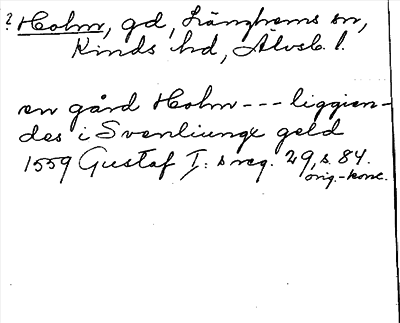 ? Holm, gd, Länghems sn,
Kinds hd, Älvsb. l.
en gård Holm --- liggien-
des i Svenliunge geld
1559 Gustaf I: s reg. 29, s. 84.
orig.-konc.